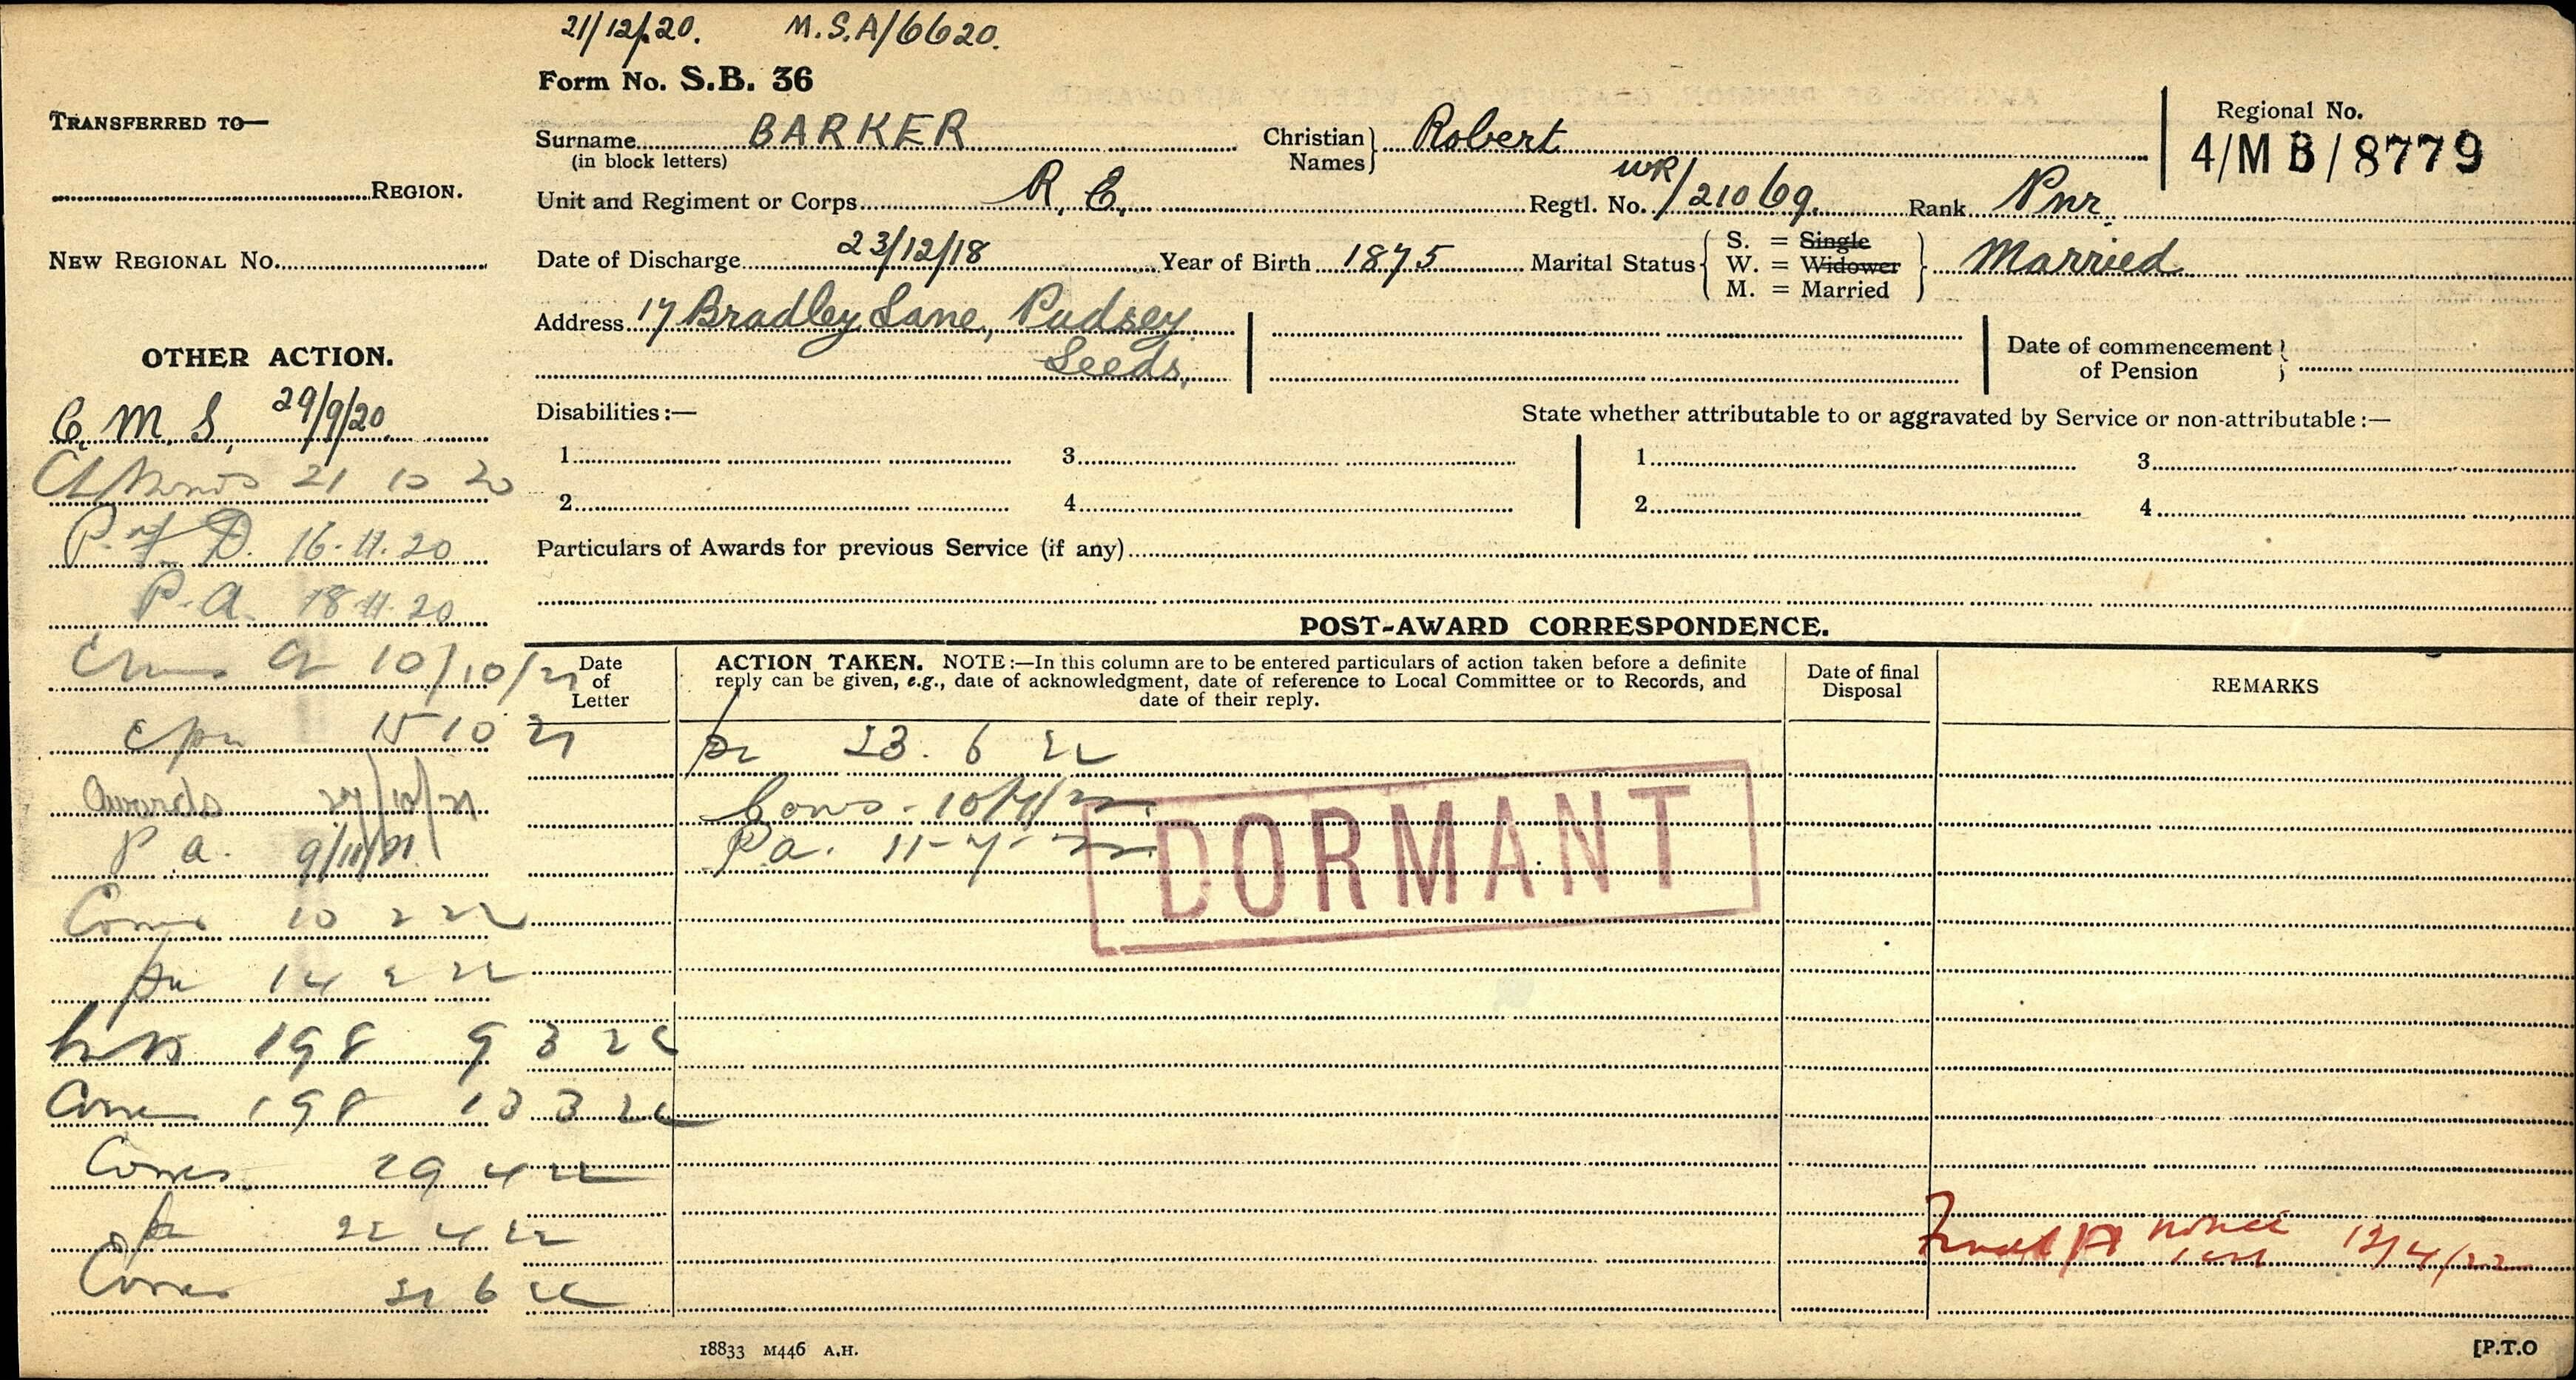 21/12/20. M.S.A/6620.
Form No. S.B. 36
TRANSFERRED TO—
REGION.
NEW REGIONAL No.
Surname BARKER
(in block letters)
Christian Names} Robert
Regional No.
4/MB/8779
Unit and Regiment or Corps R.E. Regtl. No. WR/21069 Rank Pnr.
Date of Discharge 23/12/18 Year of Birth 1875 Marital Status { S. = Single W. = Widower M. = Married } Married
Address 17 Bradley Lane, Pudsey
Leeds,
Date of commencement of Pension }
Disabilities:—
State whether attributable to or aggravated by Service or non-attributable:—
1. 3. 1. 3.
2. 4. 2. 4.
Particulars of Awards for previous Service (if any)
OTHER ACTION.
C.M.S. 29/9/20
21 10 20
P. of D. 16.11.20
P.A. 18.11.20
10/10/21
15 10 21
Awards
P a.
10 2 22
14 2 22
198 9 3 22
198 13 3 22
Corres 29 4 22
22 4 22
6 22
POST-AWARD CORRESPONDENCE.
Date of Letter
ACTION TAKEN. NOTE:—In this column are to be entered particulars of action taken before a definite
reply can be given, e.g., date of acknowledgment, date of reference to Local Committee or to Records, and
date of their reply.
Date of final Disposal
REMARKS
23. 6 22
P.a. 11-7-22
DORMANT
12/4/22
18833 M446 A.H.
[P.T.O